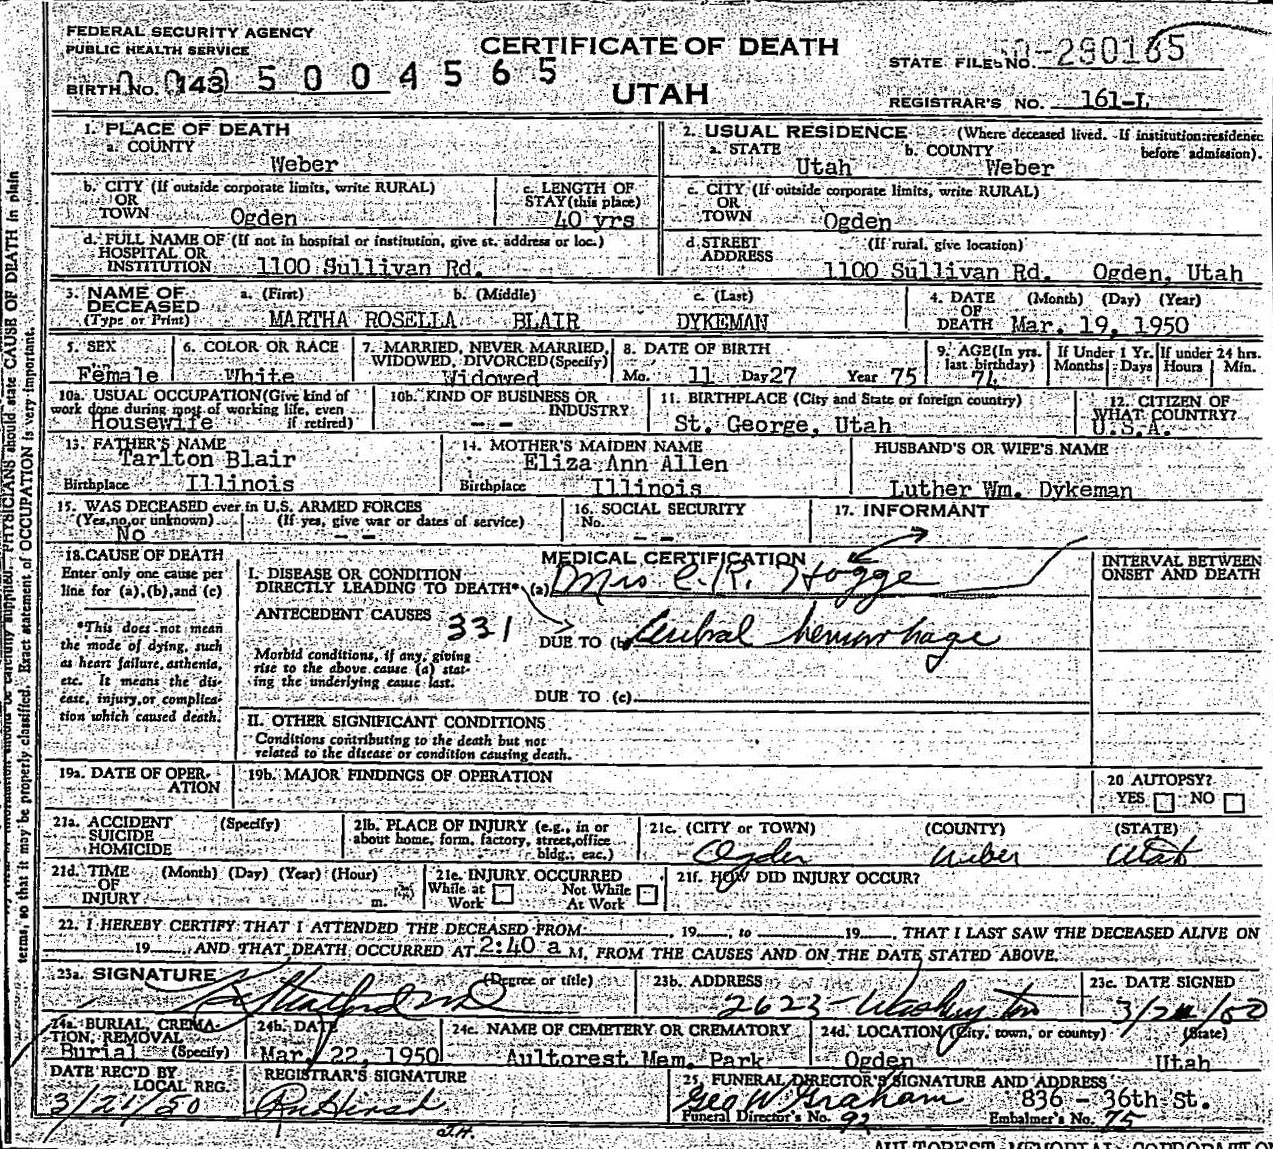 FEDERAL SECURITY AGENCY
PUBLIC HEALTH SERVICE
CERTIFICATE OF DEATH
UTAH
BIRTH No. 143 5004565
STATE FILE NO. -290165
REGISTRAR'S NO. 161-L
1. PLACE OF DEATH
a. COUNTY
Weber
2. USUAL RESIDENCE (Where deceased lived. If institution: residence before admission).
a. STATE Utah b. COUNTY Weber
b. CITY (If outside corporate limits, write RURAL)
OR
TOWN Ogden
c. LENGTH OF STAY (this place)
40 yrs
c. CITY (If outside corporate limits, write RURAL)
OR
TOWN Ogden
d. FULL NAME OF (If not in hospital or institution, give st. address or loc.)
HOSPITAL OR
INSTITUTION 1100 Sullivan Rd.
d. STREET ADDRESS (If rural, give location)
1100 Sullivan Rd. Ogden, Utah
3. NAME OF DECEASED
(Type or Print)
a. (First) b. (Middle) c. (Last)
MARTHA ROSELLA BLAIR DYKEMAN
4. DATE OF DEATH (Month) (Day) (Year)
Mar. 19, 1950
5. SEX
Female
6. COLOR OR RACE
White
7. MARRIED, NEVER MARRIED, WIDOWED, DIVORCED (Specify)
Widowed
8. DATE OF BIRTH
Mo. 11 Day 27 Year 75
9. AGE (In yrs. last birthday)
74
If Under 1 Yr.
Months Days
If under 24 hrs.
Hours Min.
10a. USUAL OCCUPATION (Give kind of work done during most of working life, even if retired)
Housewife
10b. KIND OF BUSINESS OR INDUSTRY
- -
11. BIRTHPLACE (City and State or foreign country)
St. George, Utah
12. CITIZEN OF WHAT COUNTRY?
U.S.A.
13. FATHER'S NAME
Tarlton Blair
Birthplace Illinois
14. MOTHER'S MAIDEN NAME
Eliza Ann Allen
Birthplace Illinois
HUSBAND'S OR WIFE'S NAME
Luther Wm. Dykeman
15. WAS DECEASED ever in U.S. ARMED FORCES
(Yes, no, or unknown) (If yes, give war or dates of service)
No - -
16. SOCIAL SECURITY
No. - -
17. INFORMANT
18. CAUSE OF DEATH
Enter only one cause per line for (a), (b), and (c)
*This does not mean the mode of dying, such as heart failure, asthenia, etc. It means the disease, injury, or complication which caused death.
MEDICAL CERTIFICATION
I. DISEASE OR CONDITION
DIRECTLY LEADING TO DEATH* (a) Mrs C. R. Hogge
ANTECEDENT CAUSES
331
DUE TO (b) Cerebral hemorrhage
Morbid conditions, if any, giving rise to the above cause (a) stating the underlying cause last.
DUE TO (c)
II. OTHER SIGNIFICANT CONDITIONS
Conditions contributing to the death but not related to the disease or condition causing death.
INTERVAL BETWEEN ONSET AND DEATH
19a. DATE OF OPERATION
19b. MAJOR FINDINGS OF OPERATION
20 AUTOPSY?
YES NO
21a. ACCIDENT SUICIDE HOMICIDE (Specify)
21b. PLACE OF INJURY (e.g., in or about home, form, factory, street, office bldg., eac.)
21c. (CITY or TOWN) (COUNTY) (STATE)
Ogden Weber Utah
21d. TIME OF INJURY (Month) (Day) (Year) (Hour)
m.
21e. INJURY OCCURRED
While at Work Not While At Work
21f. HOW DID INJURY OCCUR?
22. I HEREBY CERTIFY THAT I ATTENDED THE DECEASED FROM , 19 , to 19 , THAT I LAST SAW THE DECEASED ALIVE ON
19 AND THAT DEATH OCCURRED AT 2:40 a M, FROM THE CAUSES AND ON THE DATE STATED ABOVE.
23a. SIGNATURE (Degree or title)
23b. ADDRESS
2623 - Washington
23c. DATE SIGNED
24a. BURIAL, CREMATION, REMOVAL (Specify)
Burial
24b. DATE
Mar. 22, 1950
24c. NAME OF CEMETERY OR CREMATORY
Aultorest Mem. Park
24d. LOCATION (City, town, or county) (State)
Ogden Utah
DATE REC'D BY LOCAL REG.
3/21/50
REGISTRAR'S SIGNATURE
25. FUNERAL DIRECTOR'S SIGNATURE AND ADDRESS
Geo W Graham 836 - 36th St.
Funeral Director's No. 92 Embalmer's No. 75
AULTOREST MEMORIAL CORPORATION
PHYSICIANS should state CAUSE OF DEATH in plain
terms, so that it may be properly classified. Exact statement of OCCUPATION is very important.